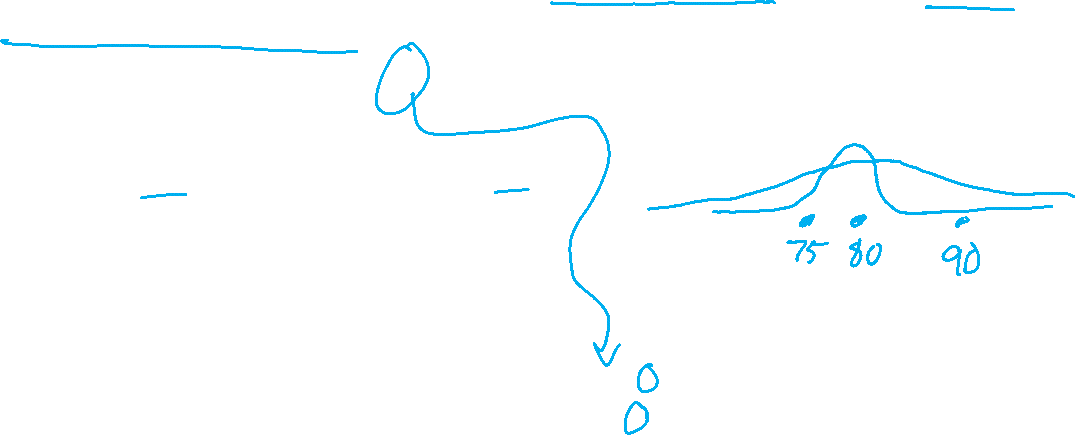 75 80 90
0
0